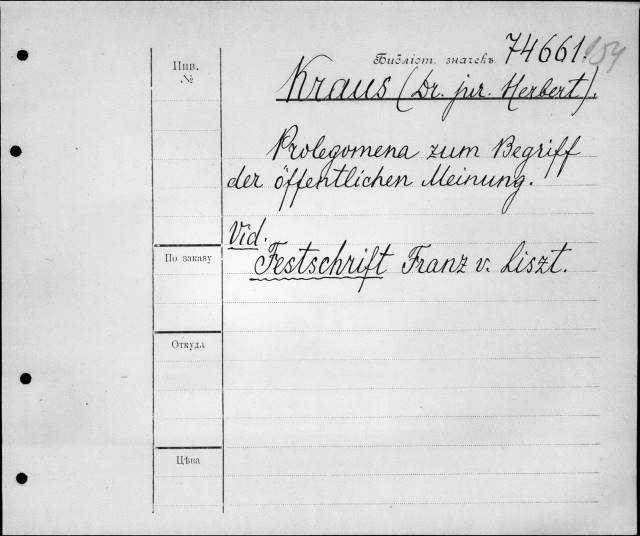 Инв.
№
Библіот. значекъ 74661.
Kraus (Dr. jur. Herbert).
Prolegomena zum Begriff
der öffentlichen Meinung.
Vid.
Festschrift Franz v. Liszt.
По заказу
Откуда
Цѣна